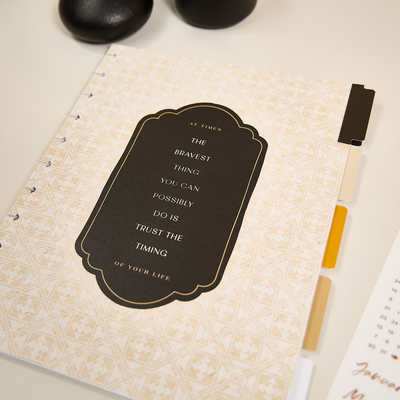 AT TIMES
THE
BRAVEST
THING
YOU CAN
POSSIBLY
DO IS
TRUST THE
TIMING
OF YOUR LIFE
January